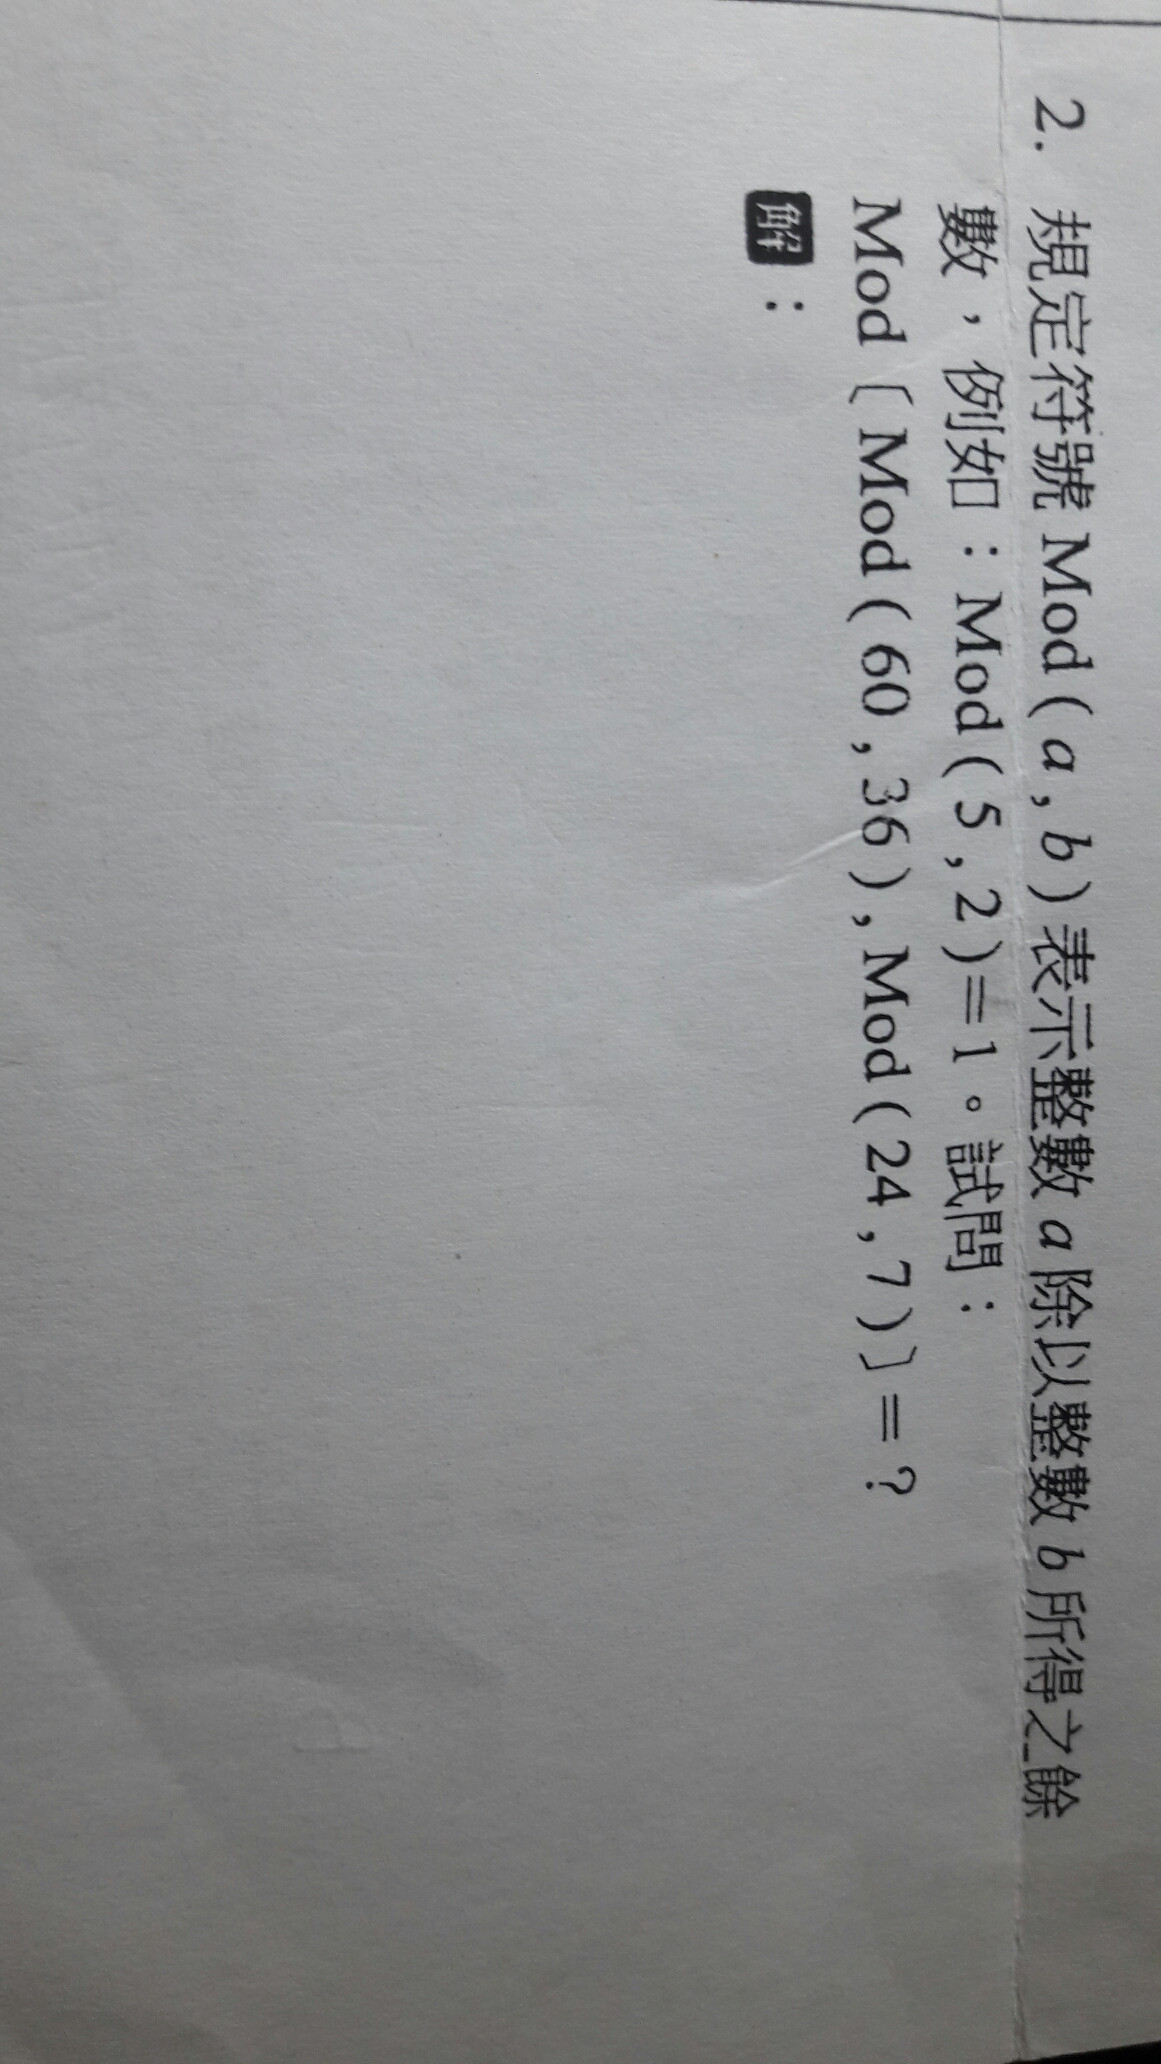 2. 規定符號 Mod ( a , b ) 表示整數 a 除以整數 b 所得之餘
數，例如：Mod ( 5 , 2 )=1。試問：
Mod〔 Mod ( 60 , 36 ) , Mod ( 24 , 7 )〕= ?
解：